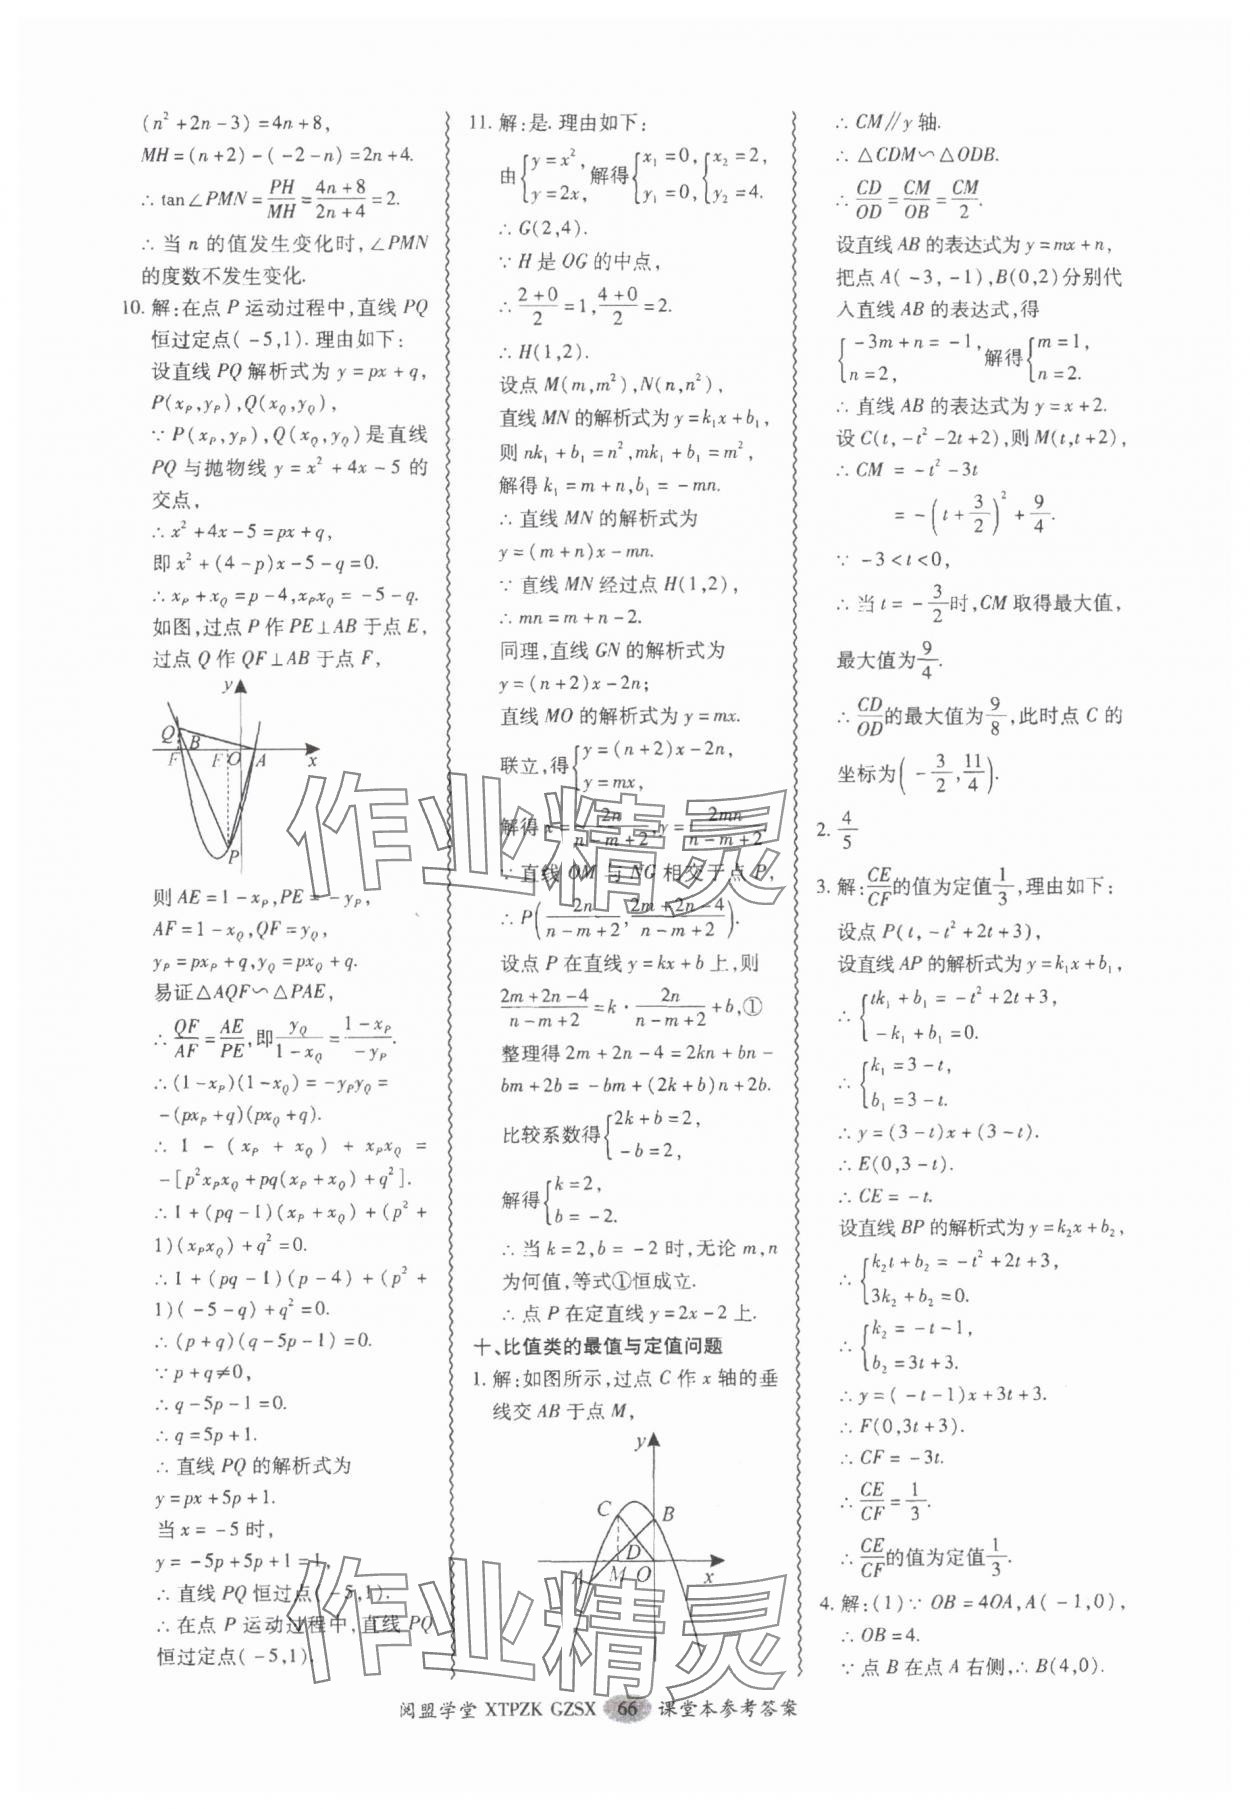 (n²+2n-3)=4n+8,
MH=(n+2)-(-2-n)=2n+4.
∴tan∠PMN=PH/MH=(4n+8)/(2n+4)=2.
∴当n的值发生变化时,∠PMN
的度数不发生变化.
10. 解:在点P运动过程中,直线PQ
恒过定点(-5,1).理由如下:
设直线PQ解析式为y=px+q,
P(x_P,y_P),Q(x_Q,y_Q),
∵P(x_P,y_P),Q(x_Q,y_Q)是直线
PQ与抛物线y=x²+4x-5的
交点,
∴x²+4x-5=px+q,
即x²+(4-p)x-5-q=0.
∴x_P+x_Q=p-4,x_Px_Q=-5-q.
如图,过点P作PE⊥AB于点E,
过点Q作QF⊥AB于点F,
y
Q B
F E O A x
P
则AE=1-x_P,PE=-y_P,
AF=1-x_Q,QF=y_Q,
y_P=px_P+q,y_Q=px_Q+q.
易证△AQF∽△PAE,
∴QF/AF=AE/PE,即y_Q/(1-x_Q)=(1-x_P)/(-y_P).
∴(1-x_P)(1-x_Q)=-y_Py_Q=
-(px_P+q)(px_Q+q).
∴1-(x_P+x_Q)+x_Px_Q=
-[p²x_Px_Q+pq(x_P+x_Q)+q²].
∴1+(pq-1)(x_P+x_Q)+(p²+
1)(x_Px_Q)+q²=0.
∴1+(pq-1)(p-4)+(p²+
1)(-5-q)+q²=0.
∴(p+q)(q-5p-1)=0.
∵p+q≠0,
∴q-5p-1=0.
∴q=5p+1.
∴直线PQ的解析式为
y=px+5p+1.
当x=-5时,
y=-5p+5p+1=1,
∴直线PQ恒过点(-5,1).
∴在点P运动过程中,直线PQ
恒过定点(-5,1).
11. 解:是.理由如下:
由{y=x², y=2x, 解得{x₁=0, y₁=0, {x₂=2, y₂=4.
∴G(2,4).
∵H是OG的中点,
∴(2+0)/2=1,(4+0)/2=2.
∴H(1,2).
设点M(m,m²),N(n,n²),
直线MN的解析式为y=k₁x+b₁,
则nk₁+b₁=n²,mk₁+b₁=m²,
解得k₁=m+n,b₁=-mn.
∴直线MN的解析式为
y=(m+n)x-mn.
∵直线MN经过点H(1,2),
∴mn=m+n-2.
同理,直线GN的解析式为
y=(n+2)x-2n;
直线MO的解析式为y=mx.
联立,得{y=(n+2)x-2n, y=mx,
解得x=2n/(n-m+2),y=2mn/(n-m+2).
∵直线OM与NG相交于点P,
∴P(2n/(n-m+2),(2m+2n-4)/(n-m+2)).
设点P在直线y=kx+b上,则
(2m+2n-4)/(n-m+2)=k·2n/(n-m+2)+b,①
整理得2m+2n-4=2kn+bn-
bm+2b=-bm+(2k+b)n+2b.
比较系数得{2k+b=2, -b=2,
解得{k=2, b=-2.
∴当k=2,b=-2时,无论m,n
为何值,等式①恒成立.
∴点P在定直线y=2x-2上.
十、比值类的最值与定值问题
1. 解:如图所示,过点C作x轴的垂
线交AB于点M,
y
C B
D
A M O x
∴CM∥y轴.
∴△CDM∽△ODB.
∴CD/OD=CM/OB=CM/2.
设直线AB的表达式为y=mx+n,
把点A(-3,-1),B(0,2)分别代
入直线AB的表达式,得
{-3m+n=-1, n=2, 解得{m=1, n=2.
∴直线AB的表达式为y=x+2.
设C(t,-t²-2t+2),则M(t,t+2),
∴CM=-t²-3t
=-(t+3/2)²+9/4.
∵-3<t<0,
∴当t=-3/2时,CM取得最大值,
最大值为9/4.
∴CD/OD的最大值为9/8,此时点C的
坐标为(-3/2,11/4).
2. 4/5
3. 解:CE/CF的值为定值1/3,理由如下:
设点P(t,-t²+2t+3),
设直线AP的解析式为y=k₁x+b₁,
∴{tk₁+b₁=-t²+2t+3, -k₁+b₁=0.
∴{k₁=3-t, b₁=3-t.
∴y=(3-t)x+(3-t).
∴E(0,3-t).
∴CE=-t.
设直线BP的解析式为y=k₂x+b₂,
∴{k₂t+b₂=-t²+2t+3, 3k₂+b₂=0.
∴{k₂=-t-1, b₂=3t+3.
∴y=(-t-1)x+3t+3.
∴F(0,3t+3).
∴CF=-3t.
∴CE/CF=1/3.
∴CE/CF的值为定值1/3.
4. 解:(1)∵OB=4OA,A(-1,0),
∴OB=4.
∵点B在点A右侧,∴B(4,0).
作业精灵
作业精灵
阅盟学堂 XTPZK GZSX 66 课堂本参考答案